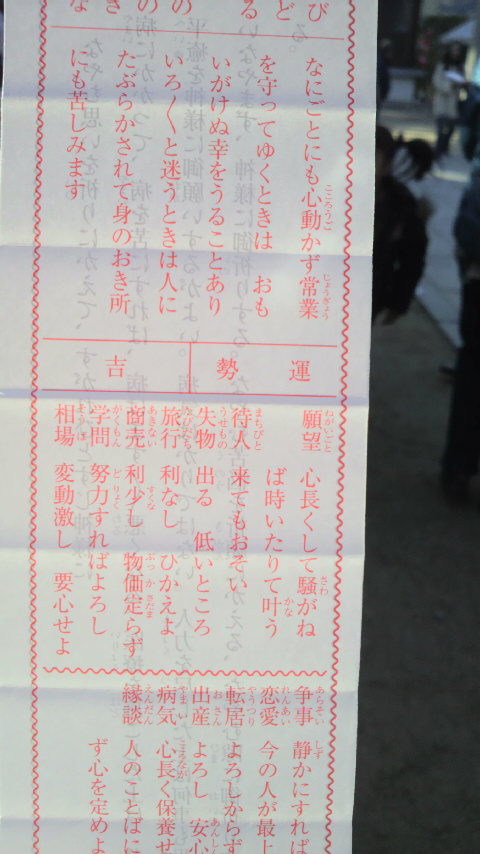 なにごとにも心動かず常業
を守ってゆくときは　おも
いがけぬ幸をうることあり
いろ〱と迷うときは人に
たぶらかされて身のおき所
にも苦しみます
運勢　吉
願望　心長くして騒がね
ば時いたりて叶う
待人　来てもおそい
失物　出る　低いところ
旅行　利なし　ひかえよ
商売　利少し　物価定らず
学問　努力すればよろし
相場　変動激し　要心せよ
争事　静かにすれば
恋愛　今の人が最上
転居　よろしからず
出産　よろし　安心
病気　心長く保養せ
縁談　人のことばに
ず心を定めよ